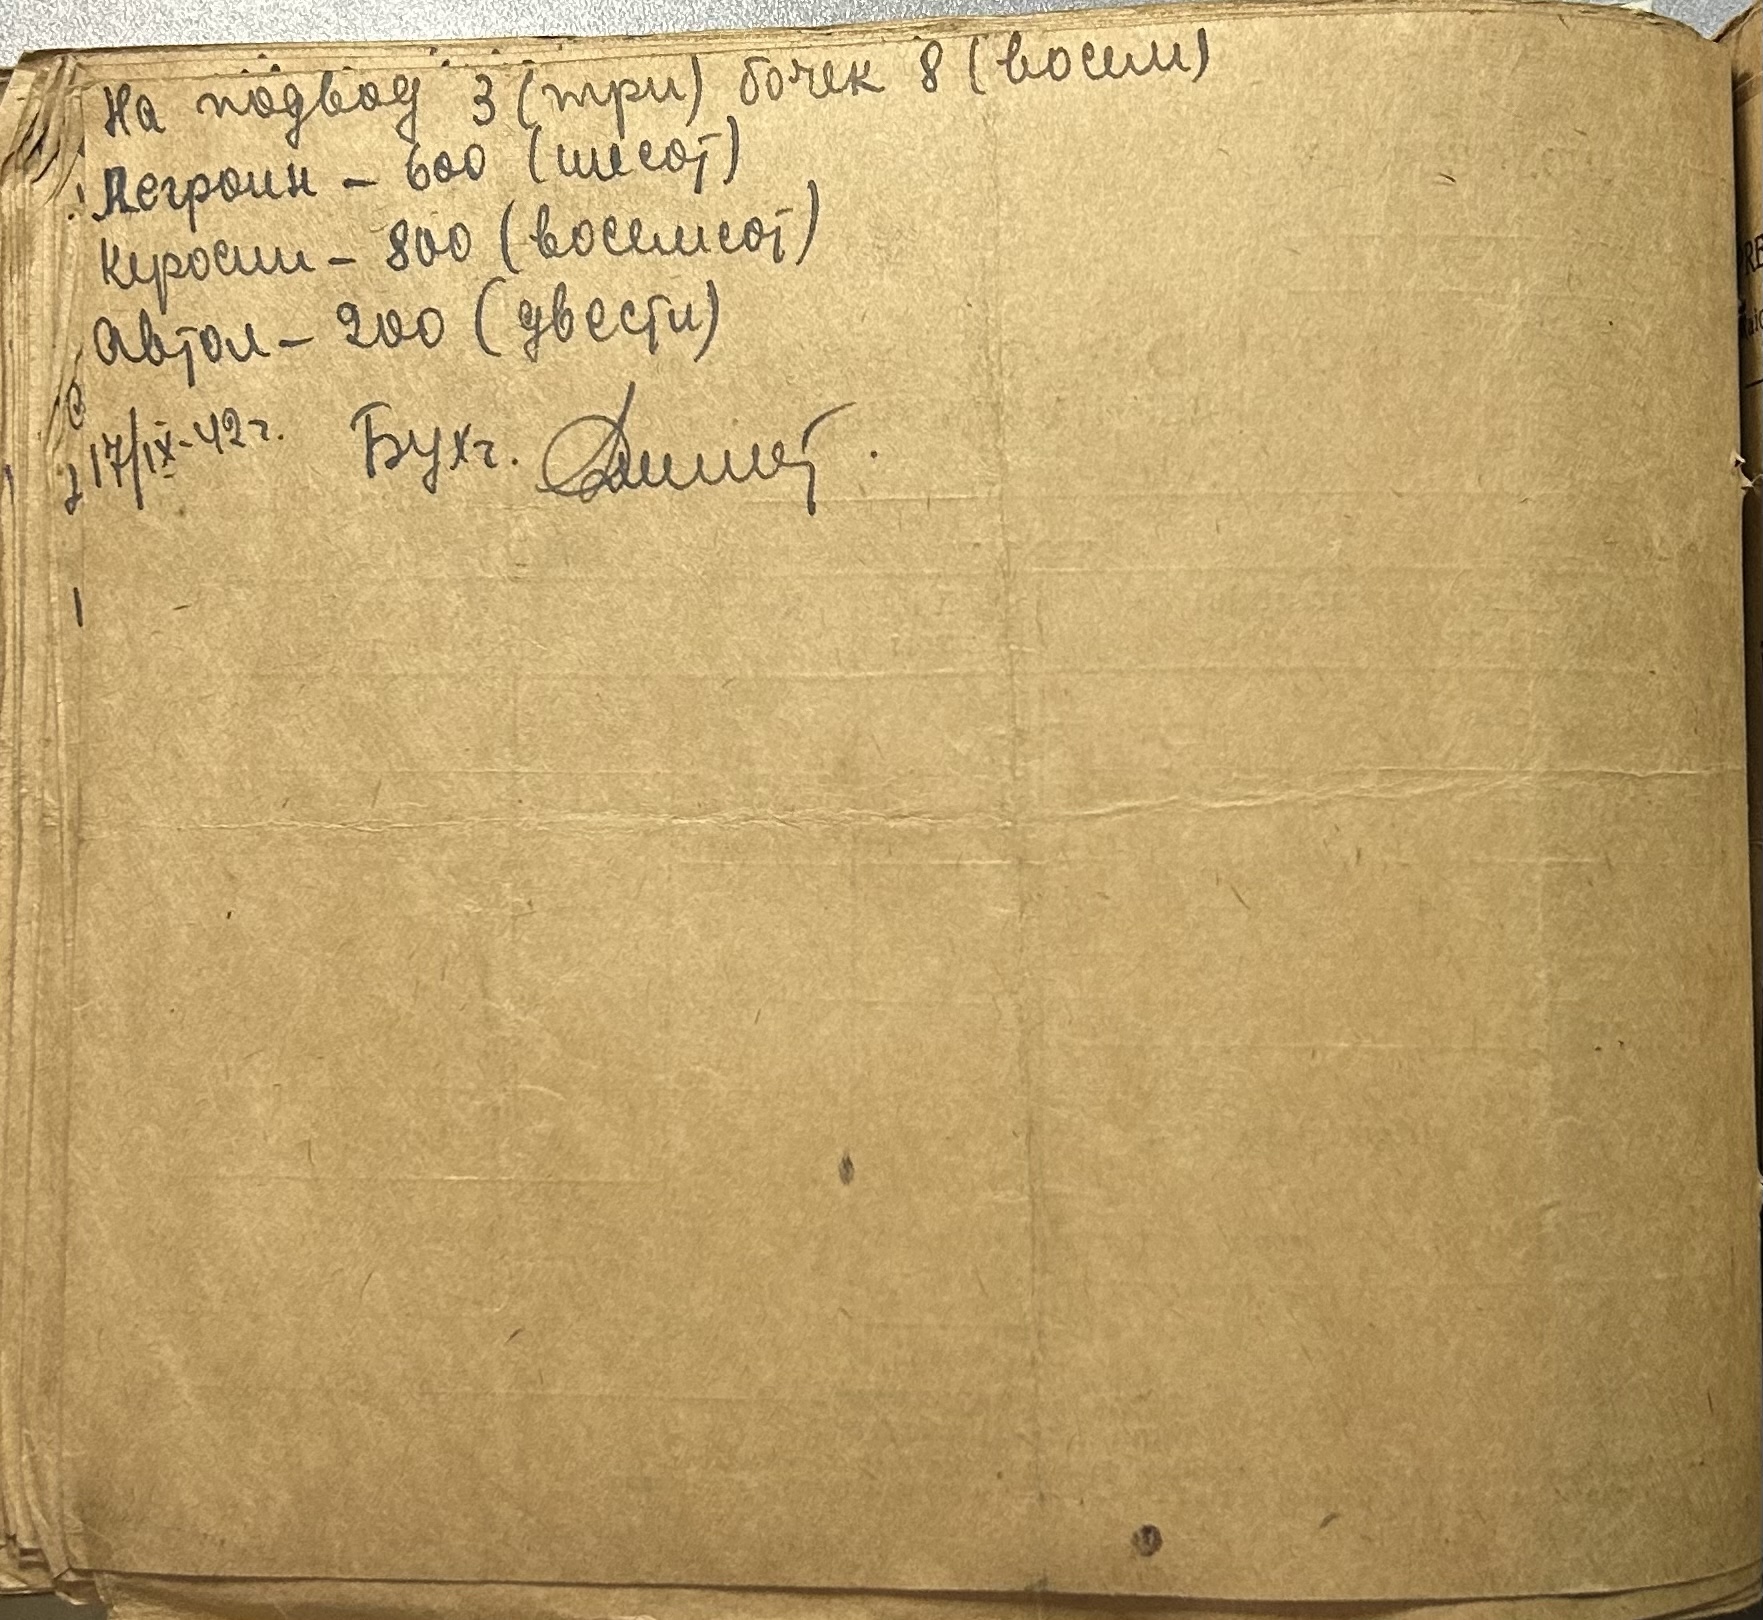 На подвод 3 (три) бочек 8 (восем)
Легроин - 600 (шесот)
Киросин - 800 (восемсот)
Автол - 200 (двести)
17/IX-42 г. Бухг.